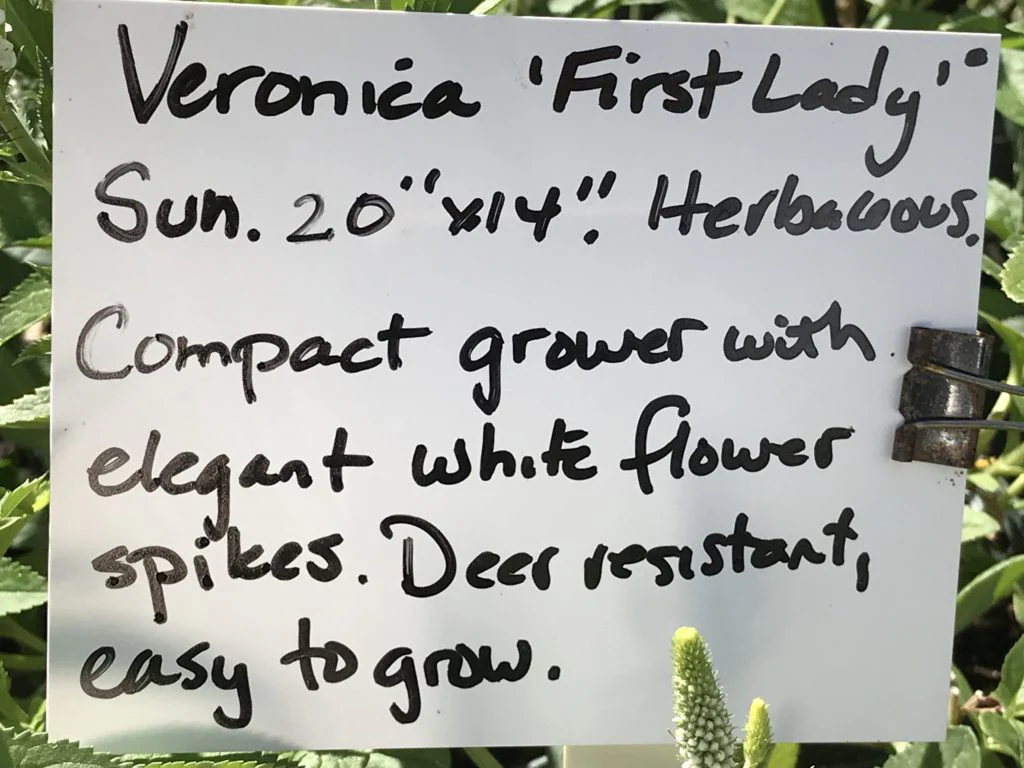 Veronica 'First Lady'
Sun. 20" x 14". Herbaceous.
Compact grower with
elegant white flower
spikes. Deer resistant,
easy to grow.